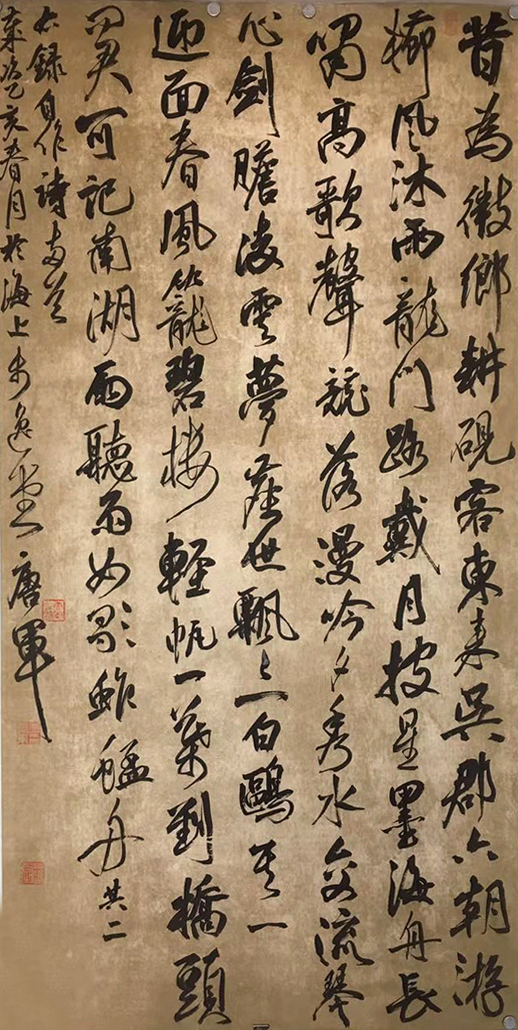 昔為徽鄉耕硯客東來吳郡六朝游
櫛風沐雨龍門路戴月披星墨海舟長
嘯高歌聲競落漫吟夕秀水交流琴
心劍膽凌雲夢塵世飄々一白鷗其一
迎面春風似籠碧樓輕帆一葉到橋頭
君可記南湖雨聽雨如歌舴艋舟其二
右錄自作詩兩首
乙亥春月於海上 唐軍